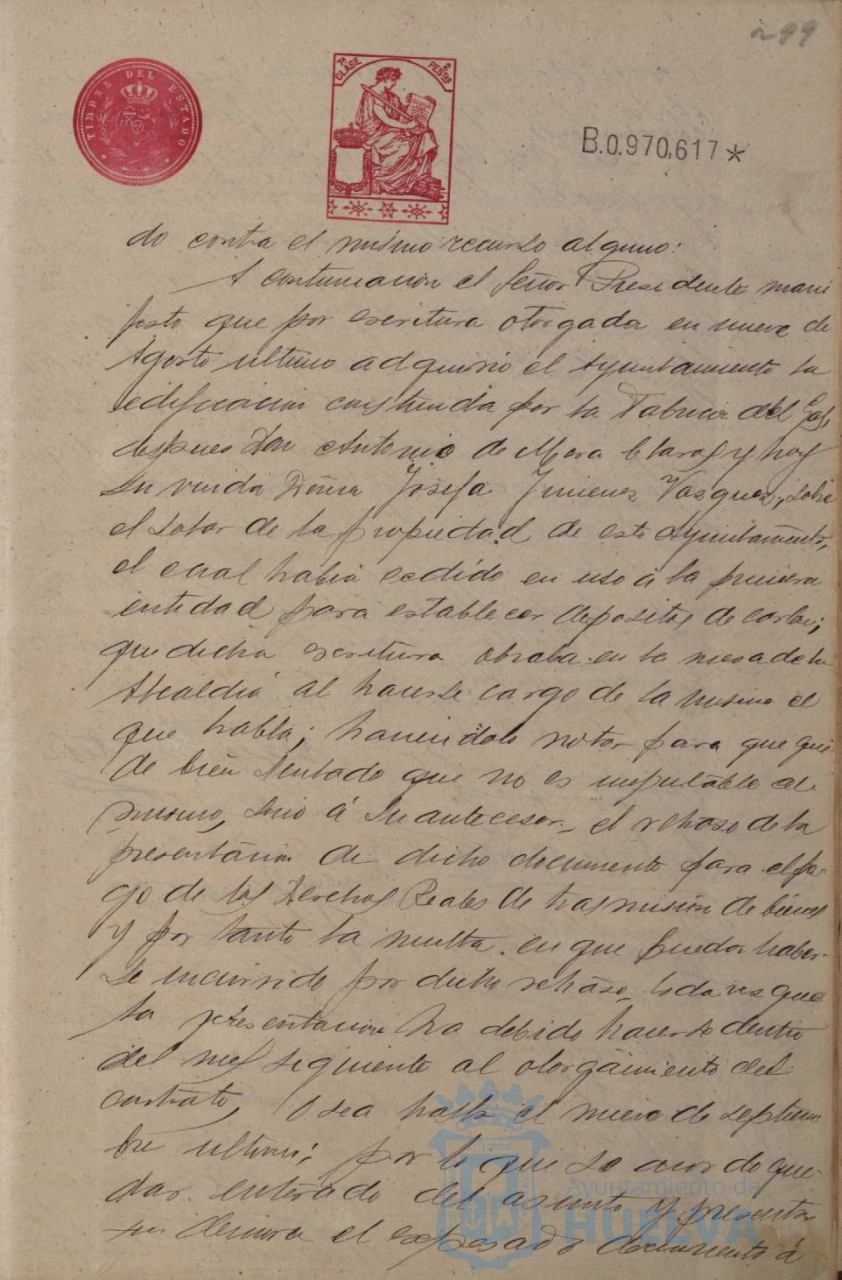 299
TIMBRE DEL ESTADO
7ª CLASE 2 PESTAS
B.0.970.617*
do contra el mismo recurso alguno.
A continuacion el Señor Presidente mani
festó que por escritura otorgada en nueve de
Agosto ultimo adquirió el Ayuntamiento la
edificacion construida por la Fabrica del Gas,
despues Don Antonio de Mora Claros y hoy
su viuda Doña Josefa Jimenez Vasquez, sobre
el solar de la propiedad de este Ayuntamiento,
el cual habia cedido en uso á la primera
entidad para establecer depositos de carbon;
que dicha escritura obraba en la mesa de la
Alcaldia al hacerse cargo de la misma el
que habla; haciendolo notar para que que
de bien sentado que no es imputable al
mismo, sino á su antecesor el retraso de la
presentacion de dicho documento para el pa-
go de los Derechos Reales de trasmision de bienes
y por tanto la multa en que pueda haber-
se incurrido por dicho retraso, toda vez que
la presentacion ha debido hacerse dentro
del mes siguiente al otorgamiento del
contrato, ó sea hasta el nueve de septiem
bre ultimo; por lo que se acordo que-
dar enterado del asunto y presentar
sin demora el expresado documento á
Ayuntamiento de
HUELVA